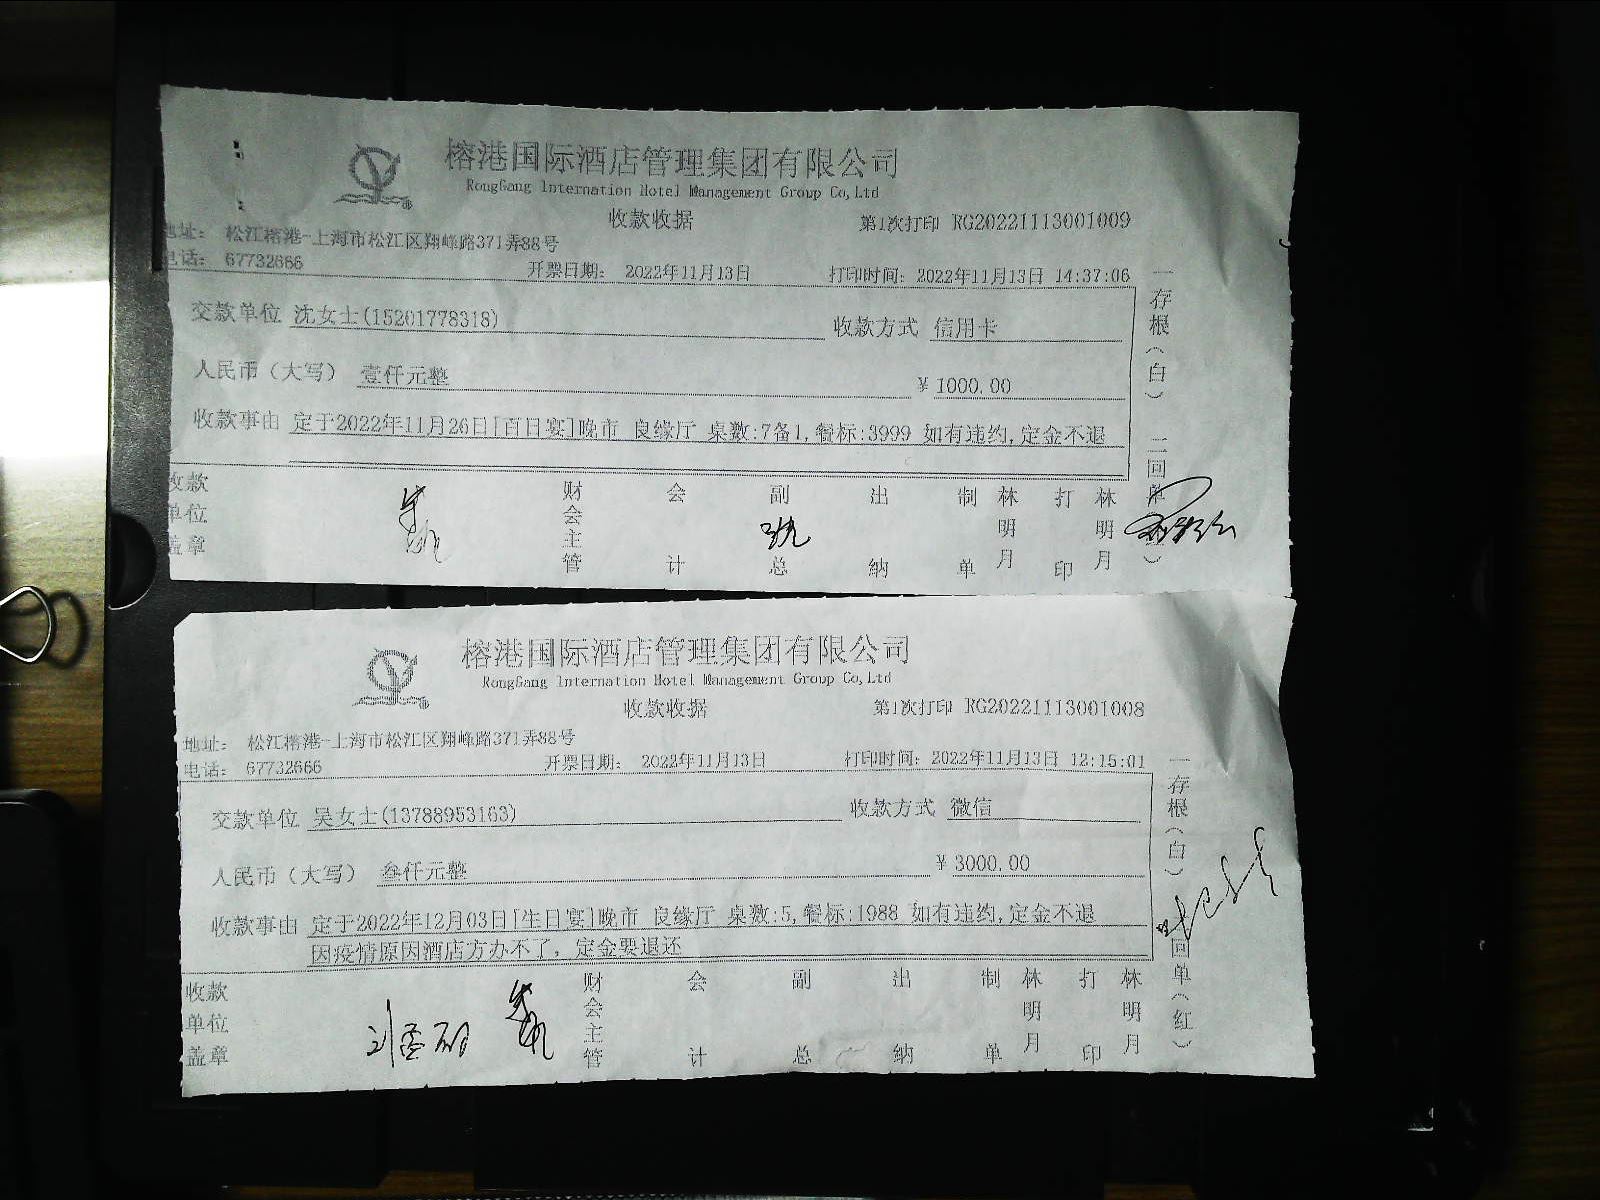 榕港国际酒店管理集团有限公司
RongGang International Hotel Management Group Co,Ltd
收款收据
第1次打印 RG20221113001009
地址： 松江榕港-上海市松江区翔峰路371弄88号
电话： 67732666
开票日期： 2022年11月13日
打印时间：2022年11月13日 14:37:06
交款单位 沈女士(15201778318)
收款方式 信用卡
人民币（大写） 壹仟元整
￥1000.00
收款事由 定于2022年11月26日[百日宴]晚市 良缘厅 桌数:7备1,餐标:3999 如有违约,定金不退
收款单位盖章
财会主管
会计
副总
出纳
制单
林明月
打印
林明月
一存根（白） 二回单
榕港国际酒店管理集团有限公司
RongGang International Hotel Management Group Co,Ltd
收款收据
第1次打印 RG20221113001008
地址： 松江榕港-上海市松江区翔峰路371弄88号
电话： 67732666
开票日期： 2022年11月13日
打印时间：2022年11月13日 12:15:01
交款单位 吴女士(13788953163)
收款方式 微信
人民币（大写） 叁仟元整
￥3000.00
收款事由 定于2022年12月03日[生日宴]晚市 良缘厅 桌数:5,餐标:1988 如有违约,定金不退
因疫情原因酒店方办不了，定金要退还
收款单位盖章
财会主管
会计
副总
出纳
制单
林明月
打印
林明月
一存根（白） 回单（红）